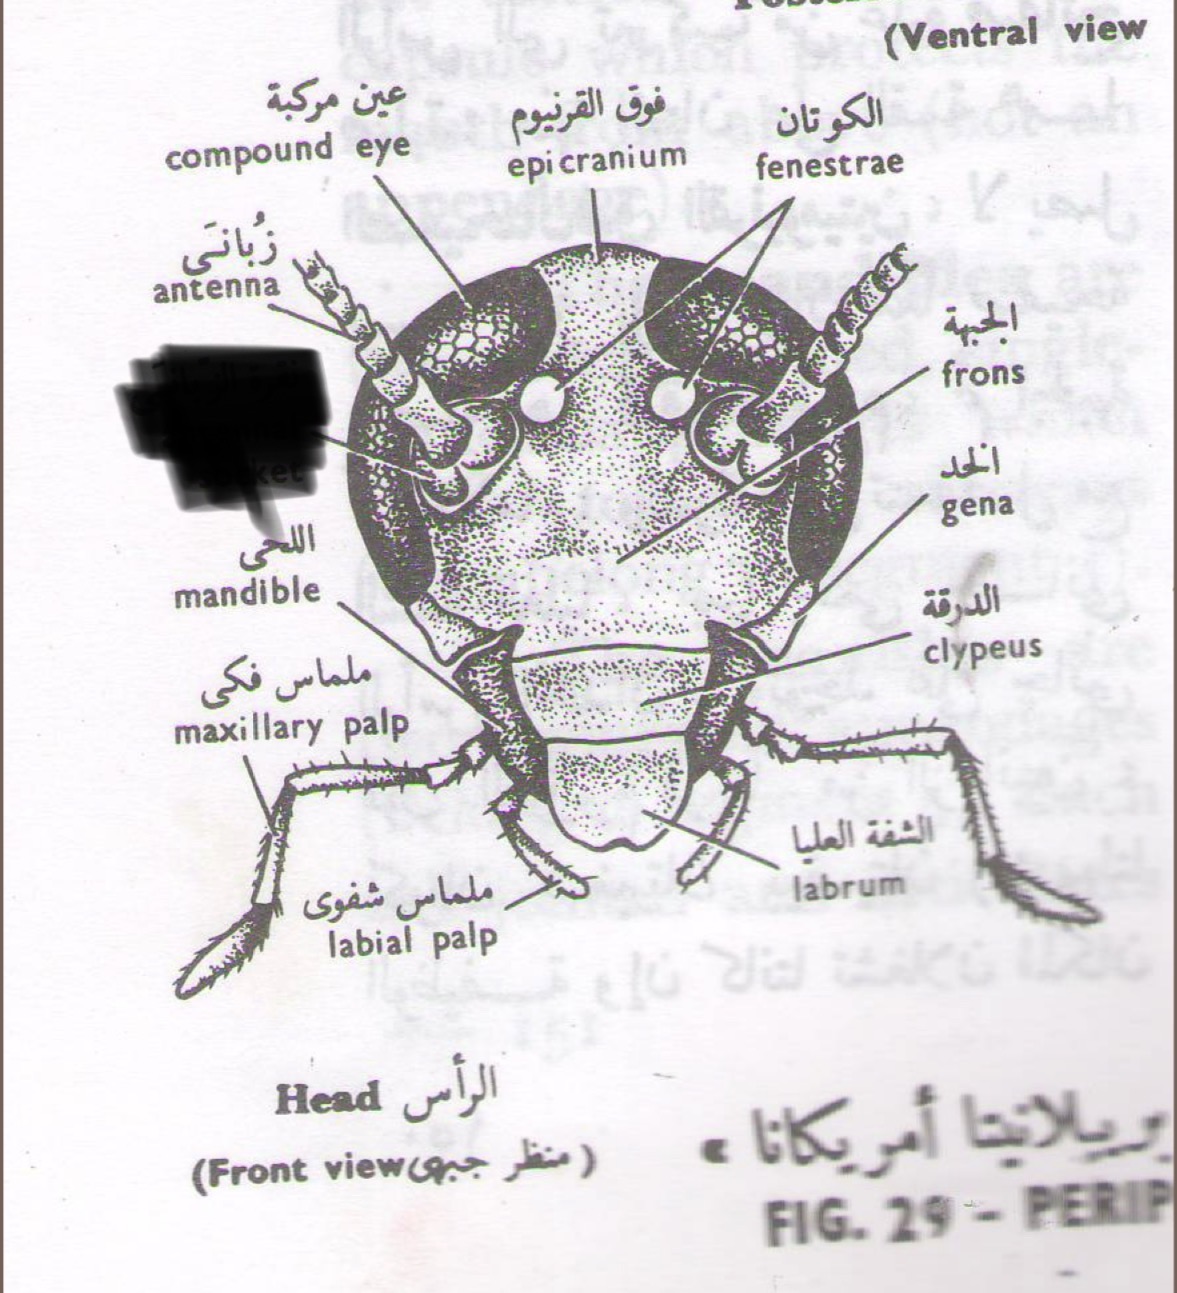 (Ventral view
عين مركبة
compound eye
فوق القرنيوم
epicranium
الكوتان
fenestrae
زُبانَى
antenna
الجبهة
frons
الخد
gena
اللحى
mandible
الدرقة
clypeus
ملماس فكى
maxillary palp
الشفة العليا
labrum
ملماس شفوى
labial palp
Head الرأس
(Front view منظر جبهى)
بريبلانيتا أمريكانا »
FIG. 29 - PERIP